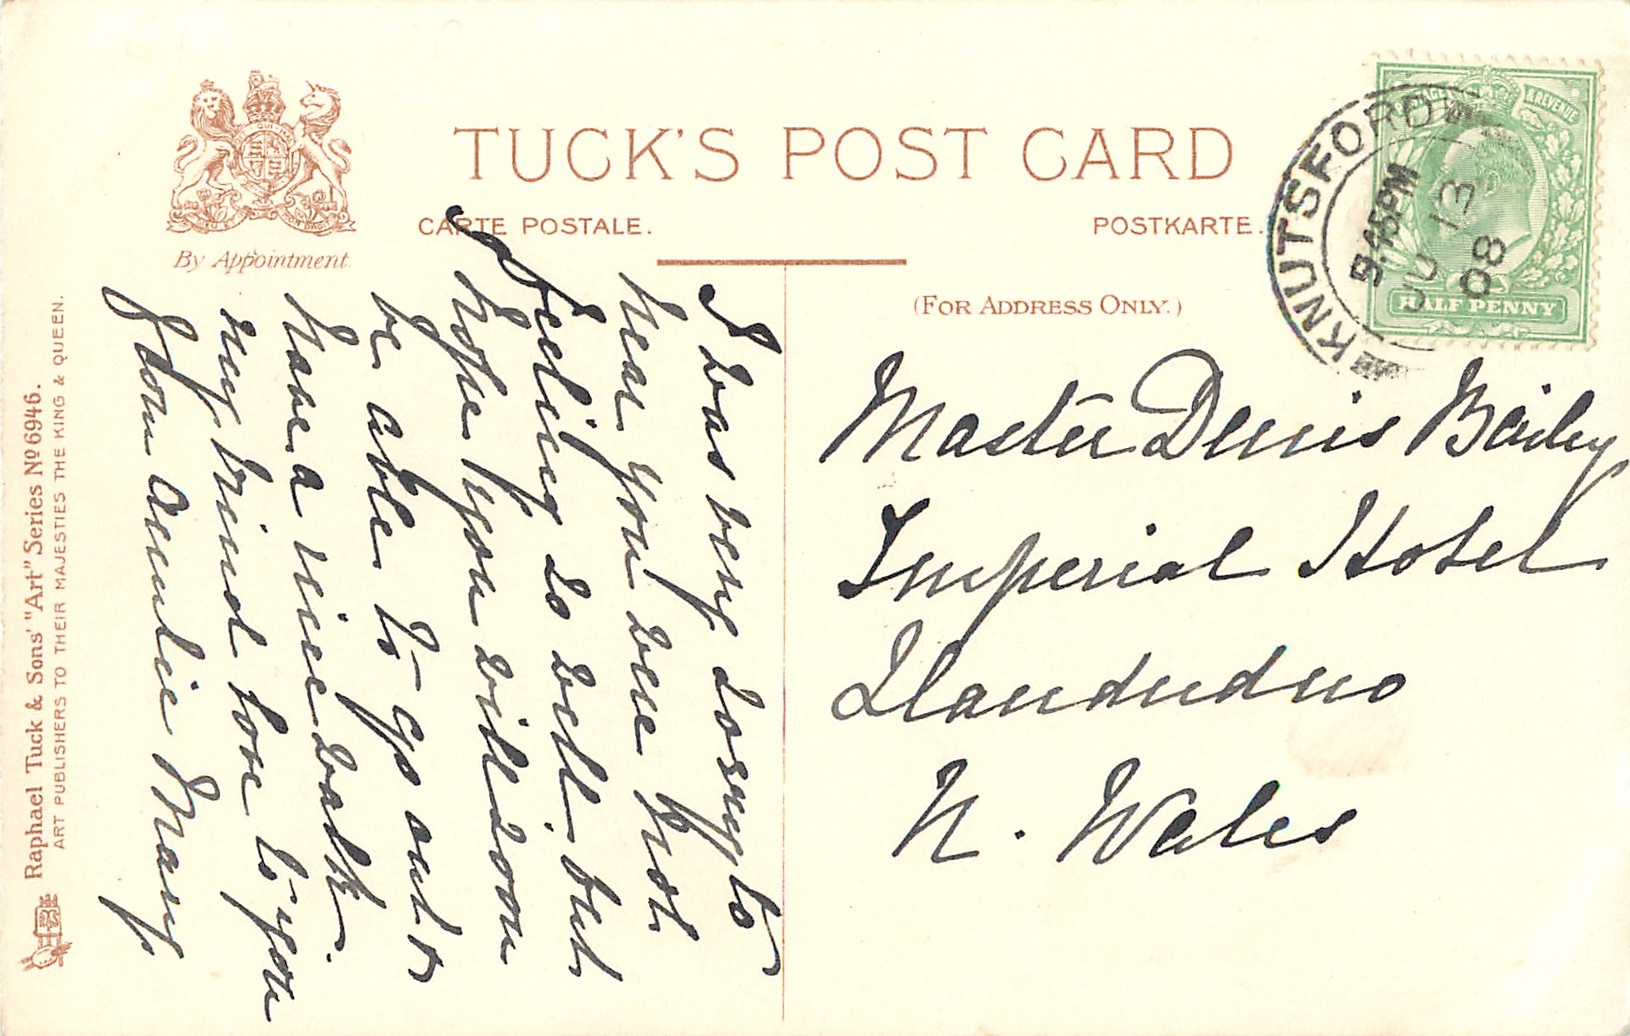 TUCK'S POST CARD
CARTE POSTALE.
POSTKARTE.
By Appointment
(FOR ADDRESS ONLY.)
POSTAGE & REVENUE
HALF PENNY
KNUTSFORD
9.45PM
JU 13
08
I was very sorry to
hear you were not
feeling so well. but
hope you will soon
be able to go out &
have a nice walk.
my kind love to you
from Auntie Mary
Master Denis Bailey
Imperial Hotel
Llandudno
N. Wales
Raphael Tuck & Sons' "Art" Series No 6946.
ART PUBLISHERS TO THEIR MAJESTIES THE KING & QUEEN.